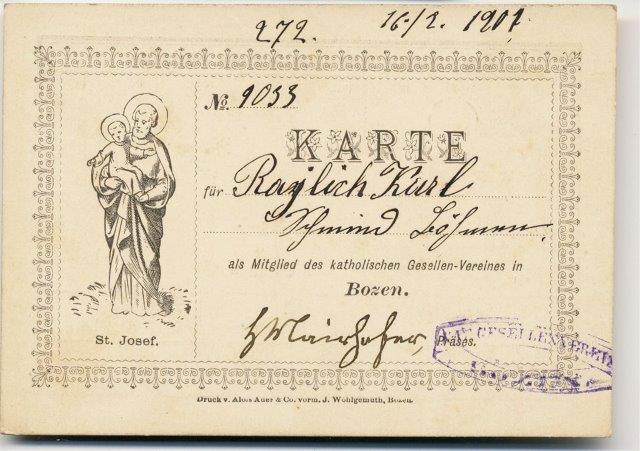 272.
16./2. 1907.
№ 9033
KARTE
für Raylich Karl
Schmied Böhmen.
als Mitglied des katholischen Gesellen-Vereines in
Bozen.
Mairhofer, Präses.
GESELLENVEREIN
St. Josef.
Druck v. Alois Auer & Co. vorm. J. Wohlgemuth, Bozen.